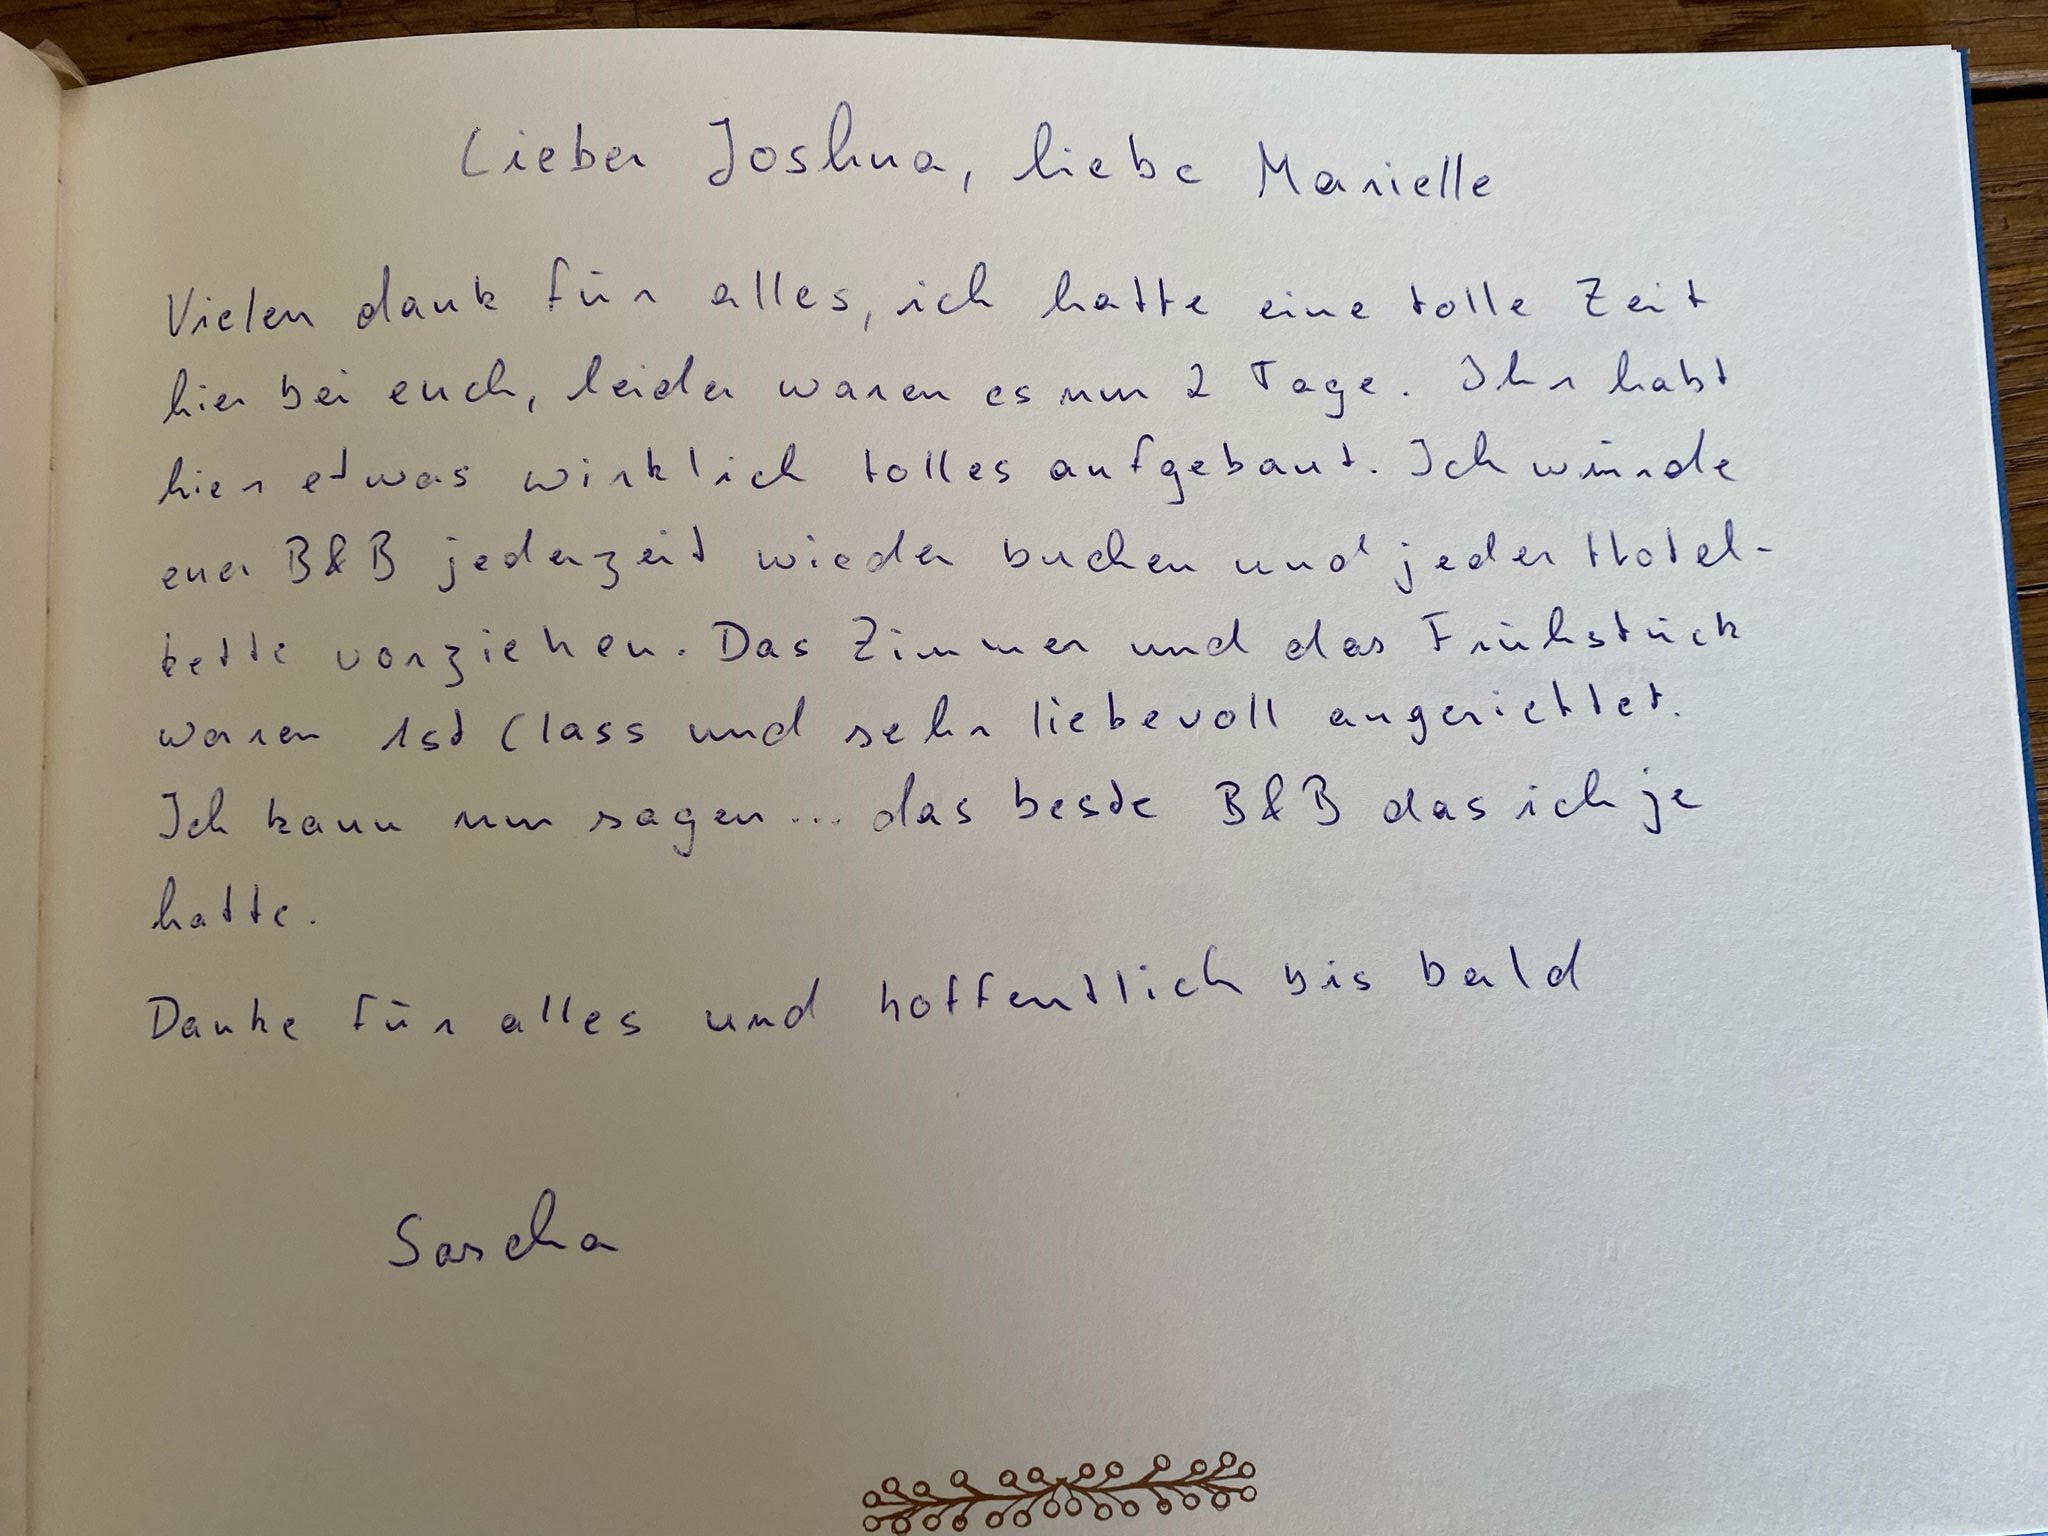 Lieber Joshua, liebe Marielle
Vielen dank für alles, ich hatte eine tolle Zeit
hier bei euch, leider waren es nur 2 Tage. Ihr habt
hier etwas wirklich tolles aufgebaut. Ich würde
euer B&B jederzeit wieder buchen und jeder Hotel-
kette vorziehen. Das Zimmer und das Frühstück
waren 1st Class und sehr liebevoll angerichtet.
Ich kann nur sagen... das beste B&B das ich je
hatte.
Danke für alles und hoffentlich bis bald
Sascha